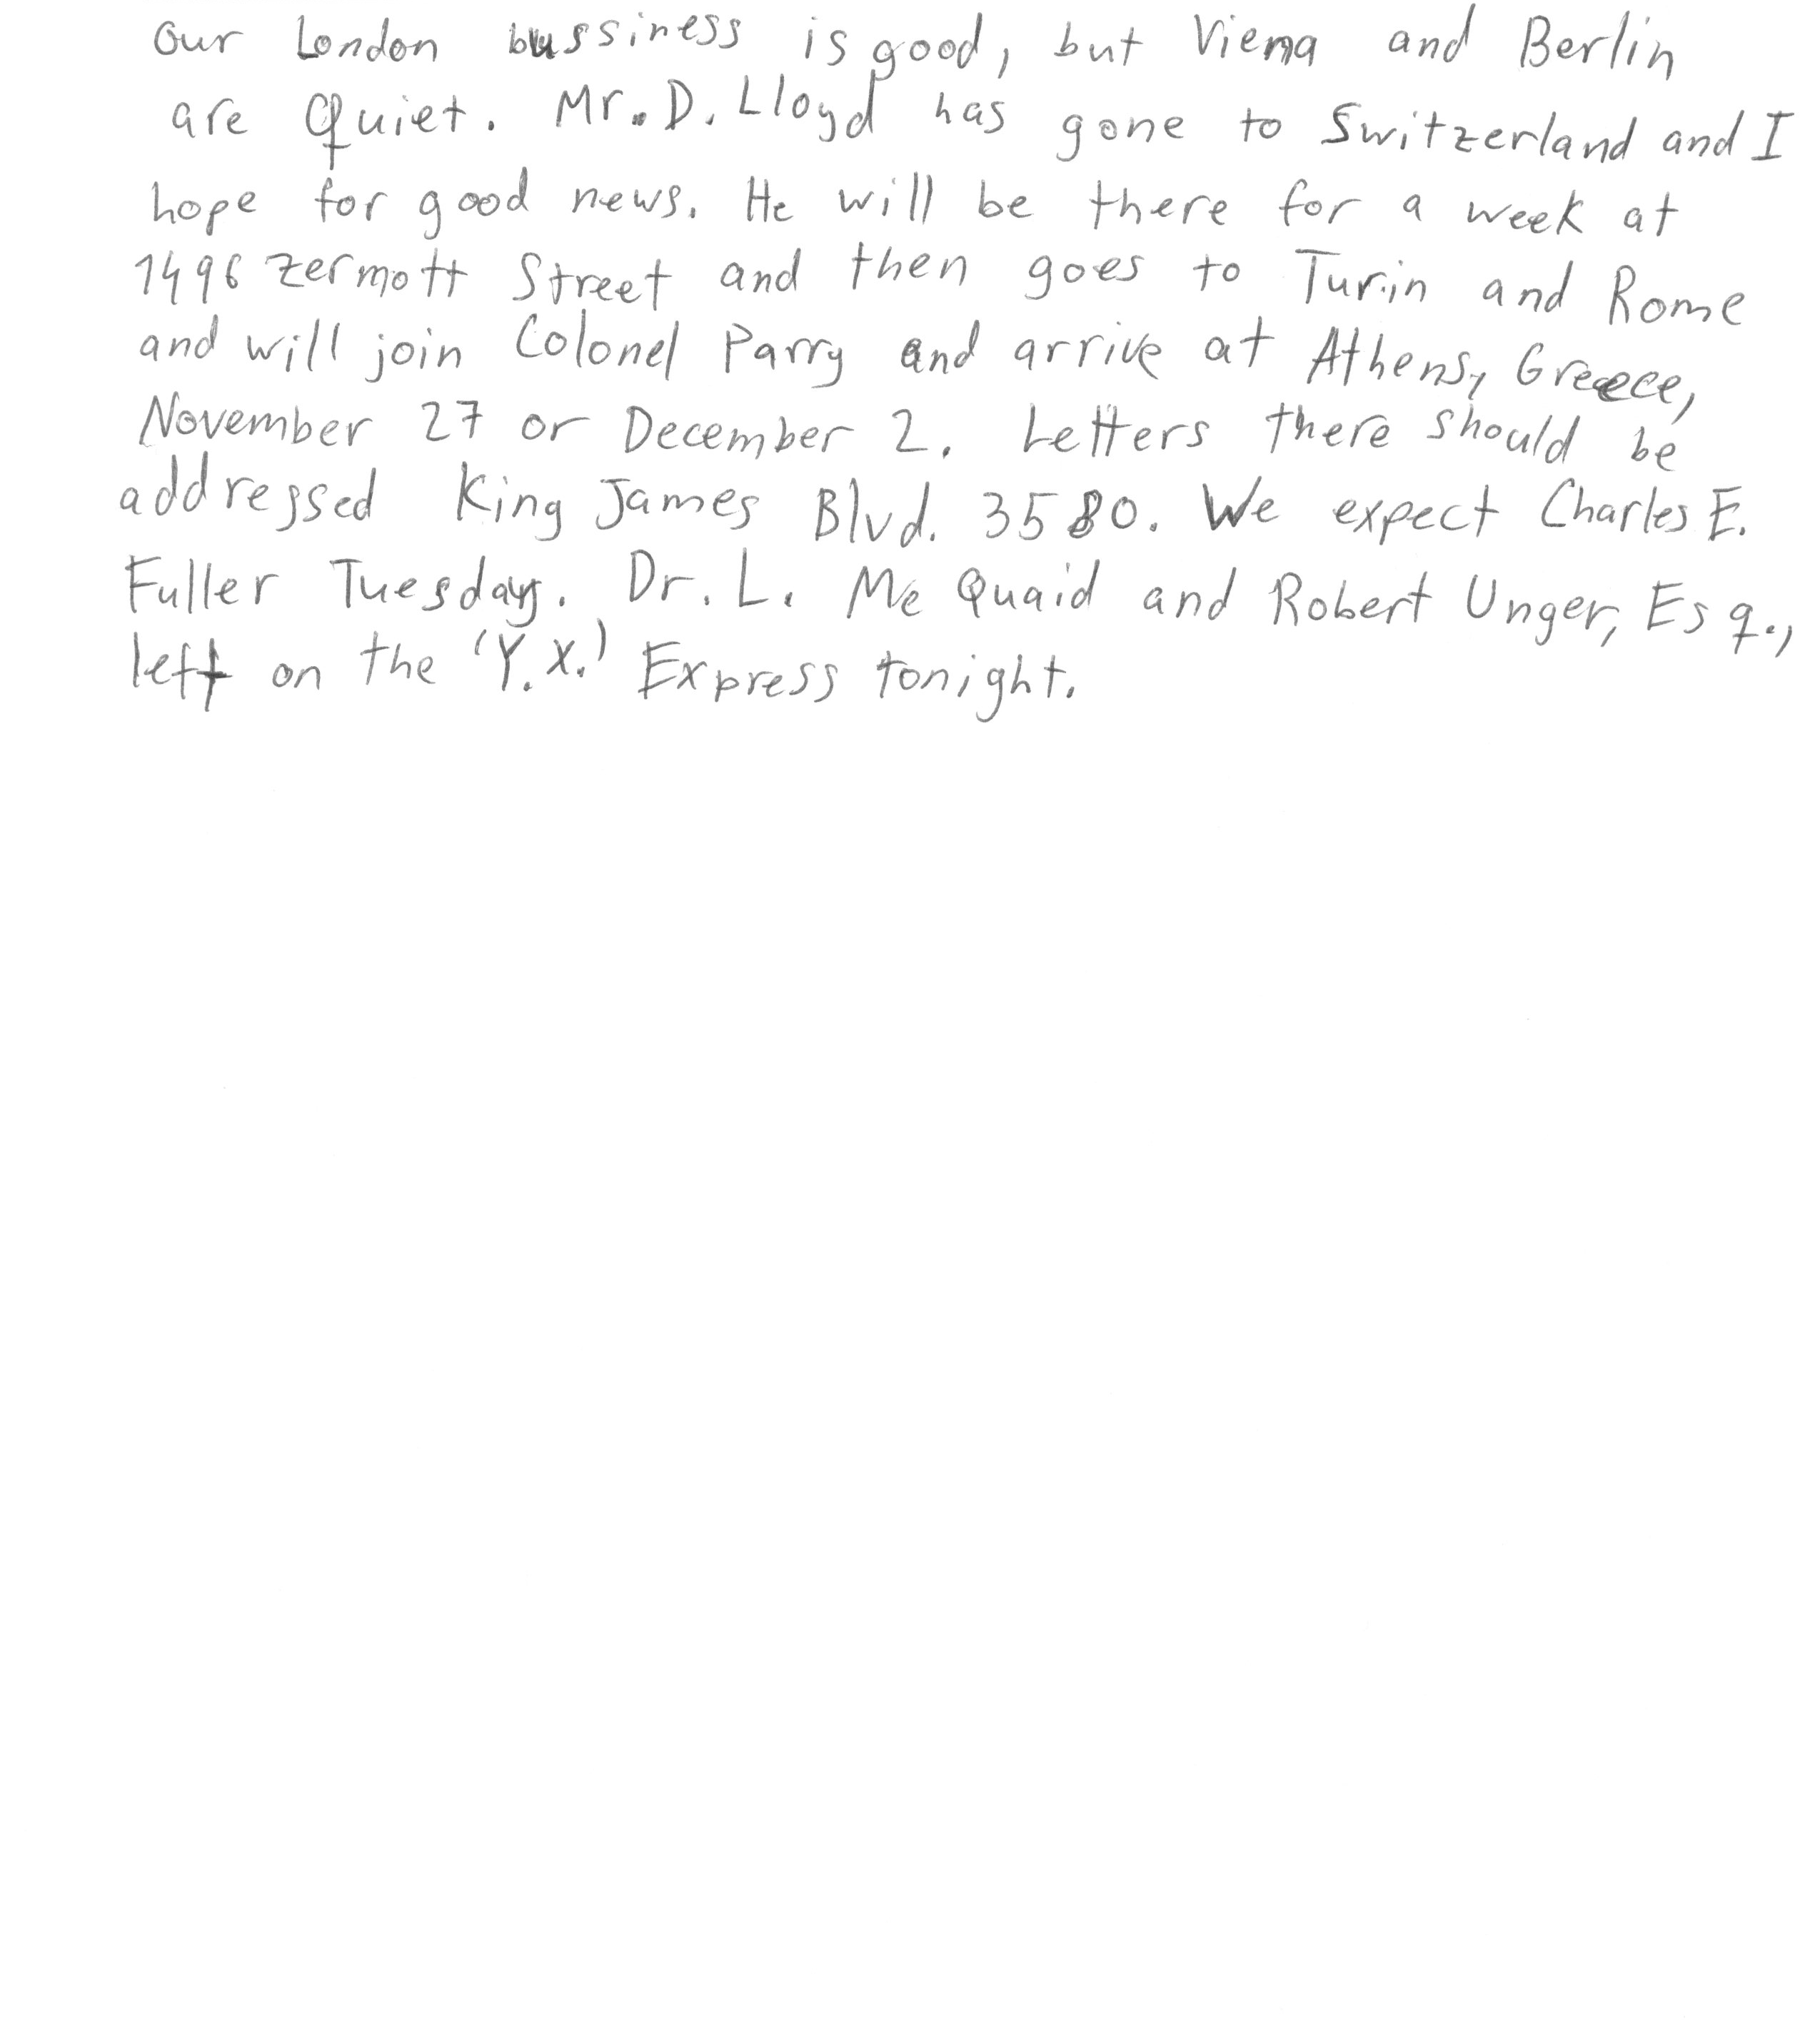 Our London bussiness is good, but Vienna and Berlin
are Quiet. Mr. D. Lloyd has gone to Switzerland and I
hope for good news. He will be there for a week at
1496 Zermott Street and then goes to Turin and Rome
and will join Colonel Parry and arrive at Athens, Greece,
November 27 or December 2. Letters there should be
addressed King James Blvd. 3580. We expect Charles E.
Fuller Tuesday. Dr. L. Mc Quaid and Robert Unger, Esq.,
left on the 'Y.X.' Express tonight.